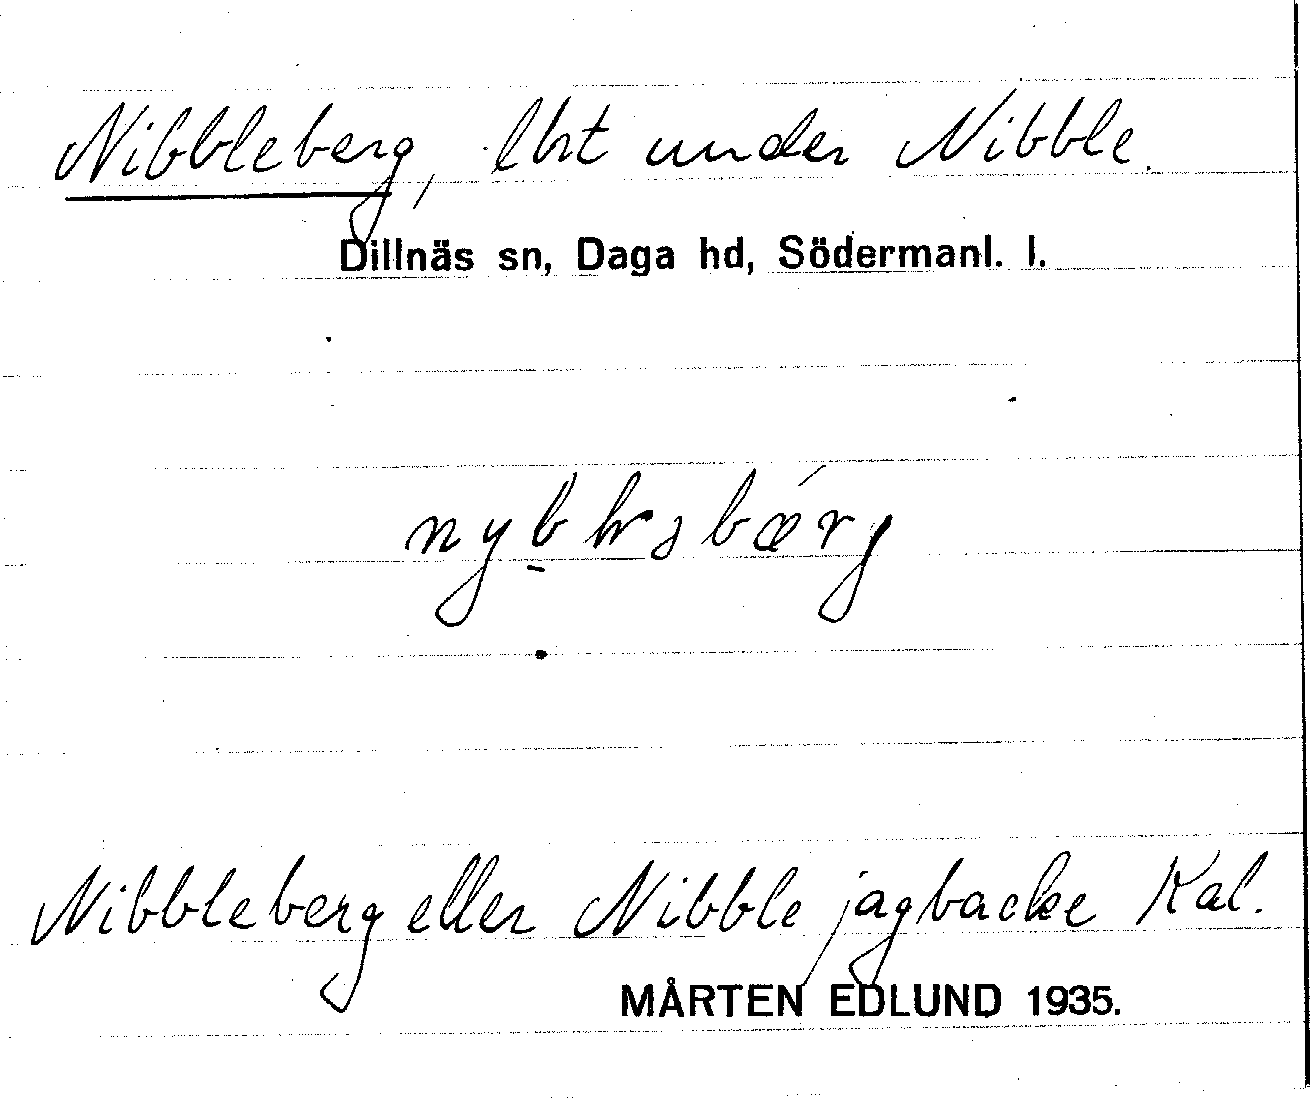 Nibbleberg, lht under Nibble.
Dillnäs sn, Daga hd, Södermanl. l.
Nibbleberg eller Nibble jagbacke Kal.
MÅRTEN EDLUND 1935.